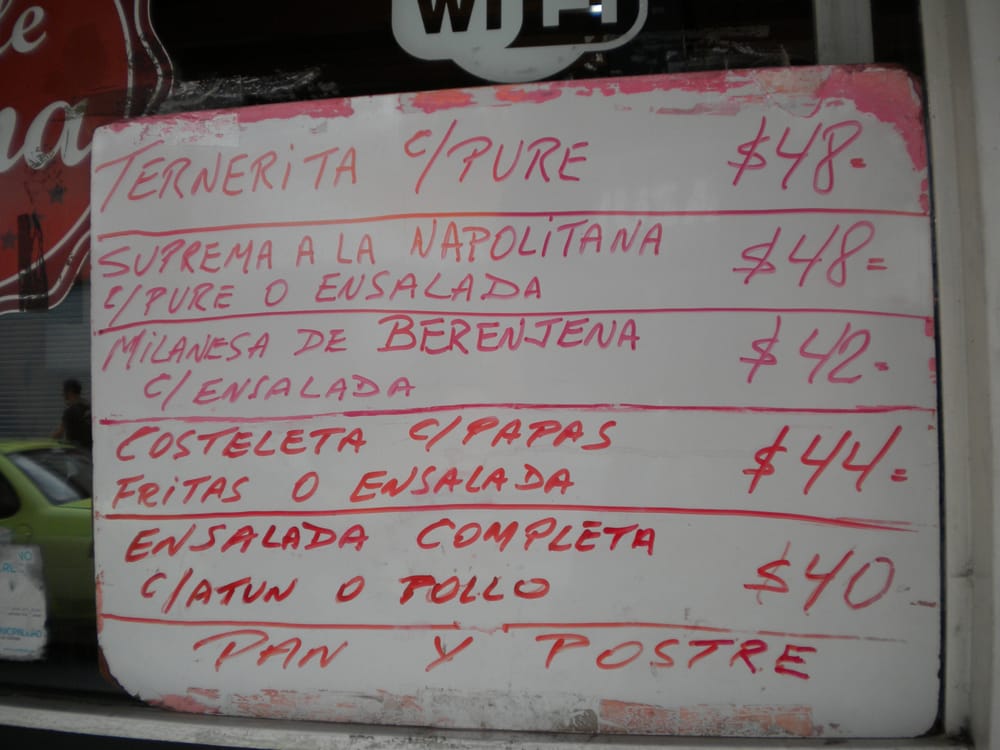 WI FI
TERNERITA C/PURE $48=
SUPREMA A LA NAPOLITANA
C/PURE O ENSALADA $48=
MILANESA DE BERENJENA
C/ENSALADA $42=
COSTELETA C/PAPAS
FRITAS O ENSALADA $44=
ENSALADA COMPLETA
C/ATUN O POLLO $40
PAN Y POSTRE